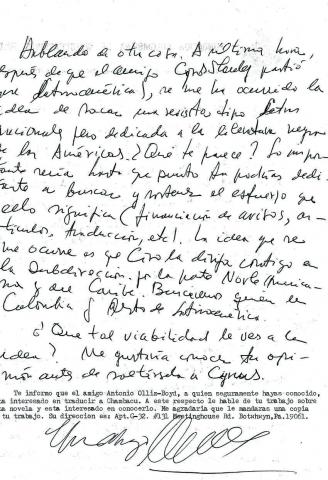 Hablando de otra cosa. A última hora,
espués de que el amigo          partió
     Latinoamérica, se me ha ocurrido la
idea de sacar una revista tipo Letras
Nacionales pero dedicada a la literatura negra
de las Américas. ¿Qué te parece? Lo impor
tante sería hasta que punto tu podrías dedi
carte a buscar y sostener el esfuerzo que
ello significa (financiación de avisos, ar
tículos, traducción, etc). La idea que se
me ocurre es que Ciro la dirija contigo en
la Subdirección, por la parte Norteamerica
na y del Caribe. Buscaremos quien en
Colombia y Resto de Latinoamérica.
¿Que tal viabilidad le ves a la
idea? Me gustaría conocer tu opi-
nión antes de soltársela a Cyrus.
Te informo que el amigo Antonio Ollis-Boyd, a quien seguramente hayas conocido,
ta interesado en traducir a Chambacu. A este respecto le hable de tu trabajo sobre
ta novela y esta interesado en conocerlo. Me agradaria que le mandaras una copia
tu trabajo. Su direccion es: Apt.G-32. #131 Westinghouse Rd. Bothwyn,Pa.19061.